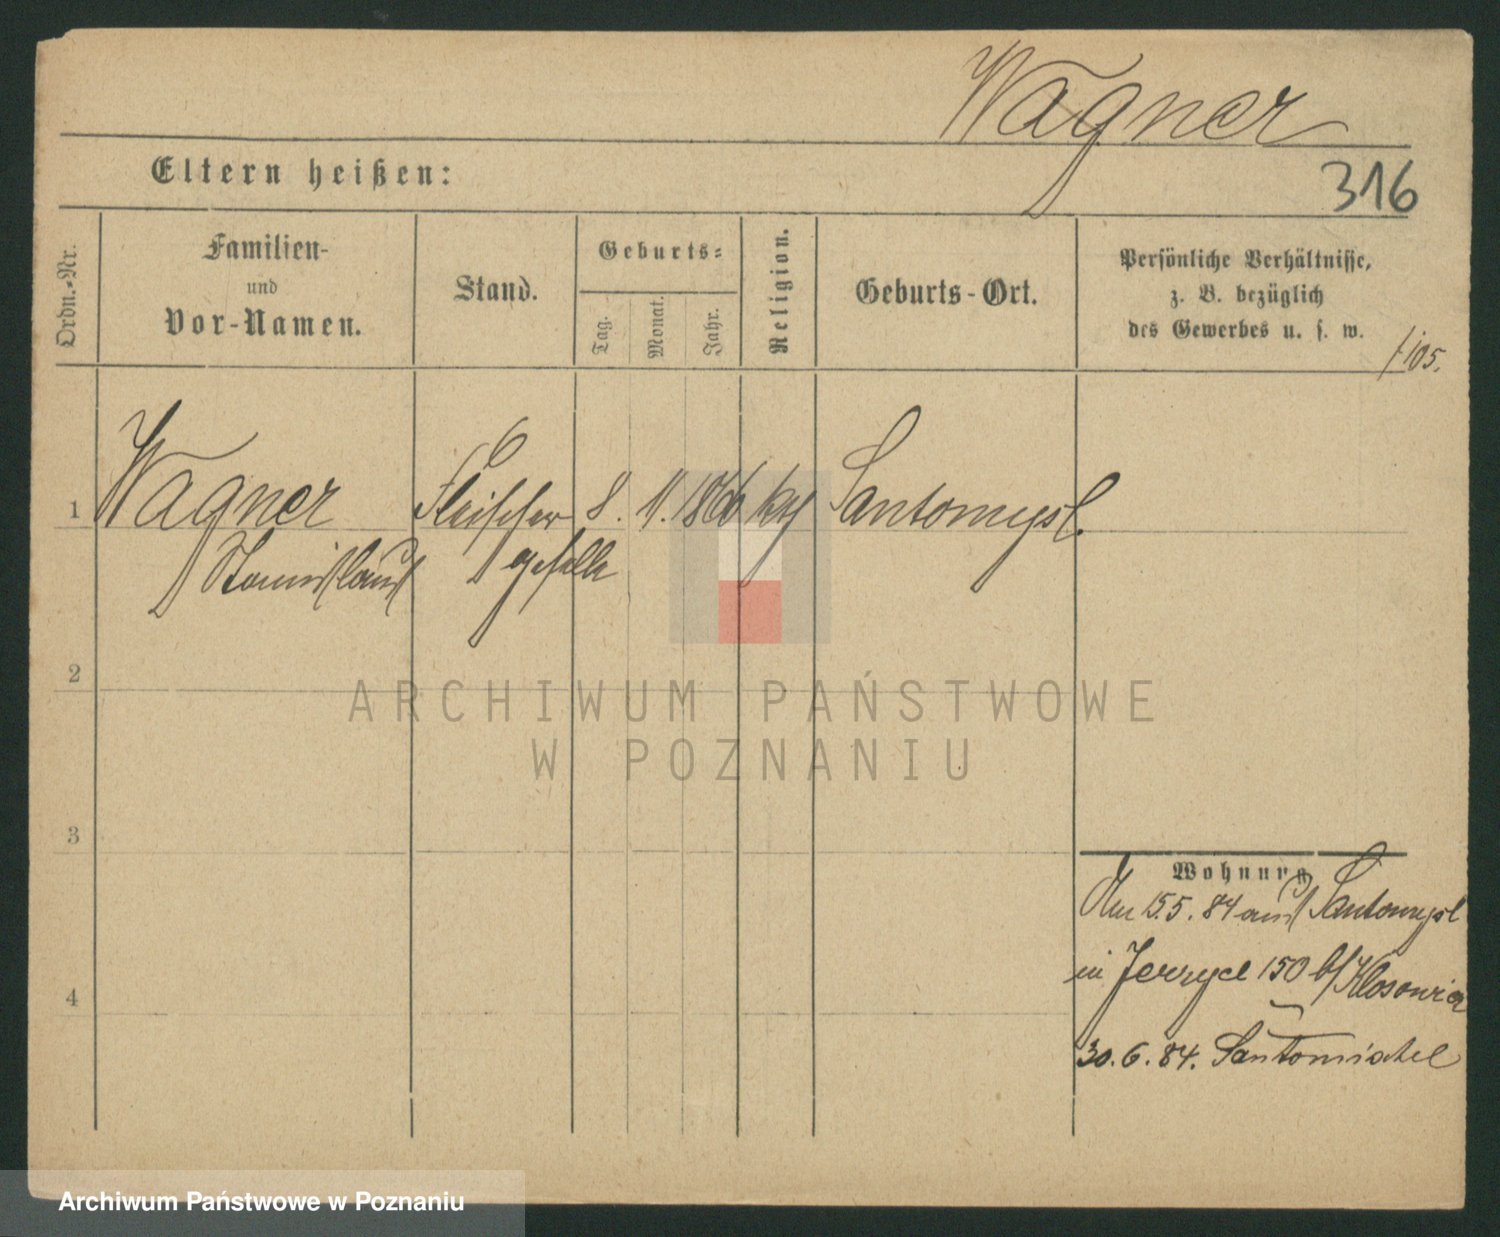 Wagner
Eltern heißen:
316
Ordn.-Nr.
Familien-
und
Vor-Namen.
Stand.
Geburts-
Tag.
Monat.
Jahr.
Religion.
Geburts-Ort.
Persönliche Verhältnisse,
z. B. bezüglich
des Gewerbes u. s. w.
105.
1
Wagner
Stanislaus
Fleischer
geselle
8. 11. 1866
kth
Santomysl.
2
ARCHIWUM PAŃSTWOWE
W POZNANIU
3
4
Wohnung
15.5.84 aus Santomysl
in Jerzyce 150 b/
30.6.84. Santomischel
Archiwum Państwowe w Poznaniu